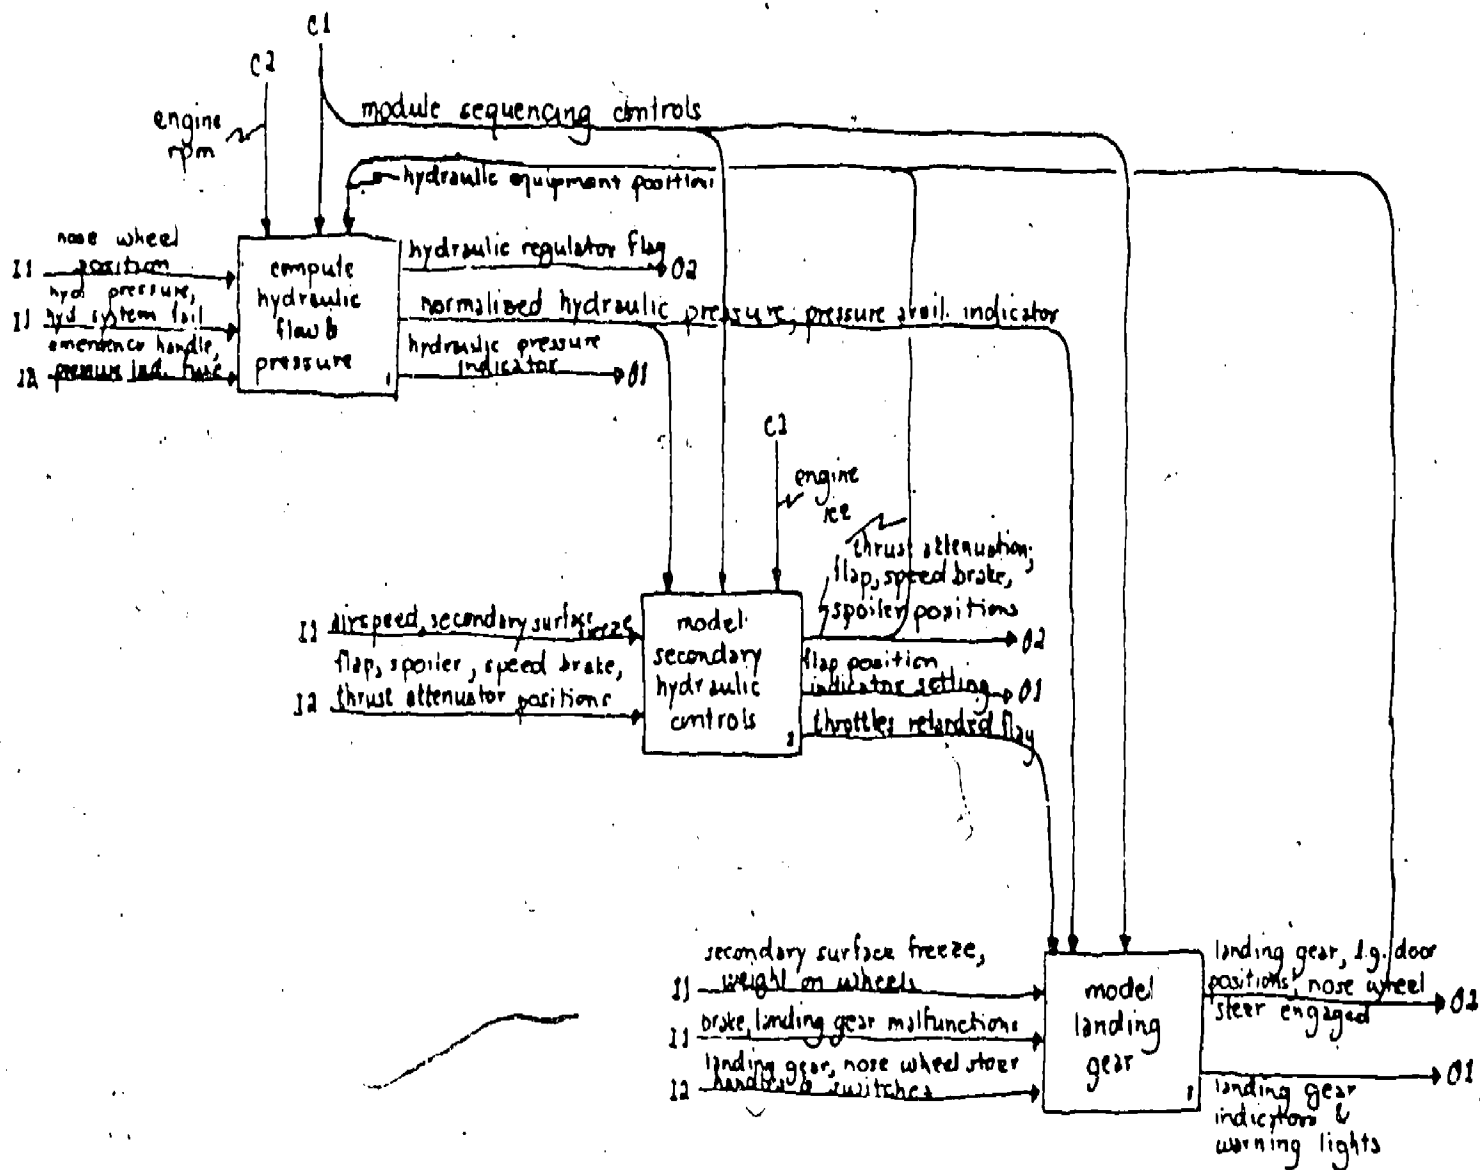 C1
C2
module sequencing controls
engine
rpm
hydraulic equipment position
nose wheel
position
I1
hyd pressure,
I1 hyd system fail
handle,
I2 pressure
compute
hydraulic
flow &
pressure
1
hydraulic regulator flag
O2
normalized hydraulic pressure, pressure avail. indicator
hydraulic pressure
indicator
O1
C2
engine
thrust attenuation,
flap, speed brake,
spoiler positions
O2
I1 airspeed, secondary surface freeze
flap, spoiler, speed brake,
I2 thrust attenuator positions
model
secondary
hydraulic
controls
2
flap position
indicator setting
O1
throttles retarded flag
secondary surface freeze,
I1 weight on wheels
I1 brake, landing gear malfunctions
landing gear, nose wheel steer
I2 handles & switches
model
landing
gear
landing gear, l.g. door
positions, nose wheel
steer engaged
O2
O1
landing gear
indicators &
warning lights